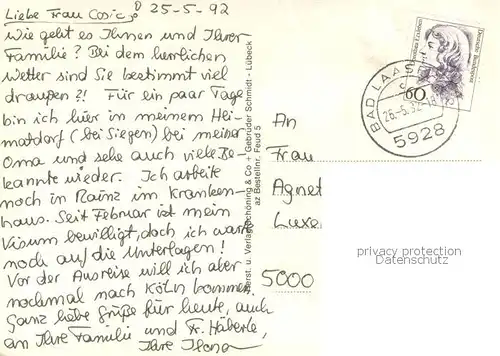 Liebe Frau Cosic, 25-5-92
Wie geht es Ihnen und Ihrer
Familie? Bei dem herrlichen
Wetter sind Sie bestimmt viel
draußen?! Für ein paar Tage
bin ich hier in meinem Hei-
matdorf (bei Siegen) bei meiner
Oma und sehe auch viele Be-
kannte wieder. Ich arbeite
noch in Mainz im Kranken-
haus. Seit Februar ist mein
Visum bewilligt, doch ich warte
noch auf die Unterlagen!
Vor der Ausreise will ich aber
nochmal nach Köln kommen.
Ganz liebe Grüße für heute, auch
an Ihre Familie und Fr. Häberle,
Ihre Ilona
Herst. u. Verlag Schöning & Co + Gebrüder Schmidt - Lübeck
az Bestellnr. Feud 5
Deutsche Bundespost
60
BAD LAAS
26.-5.92-18
5928
An
Frau
Agnet
Luxe
5000
privacy protection
Datenschutz